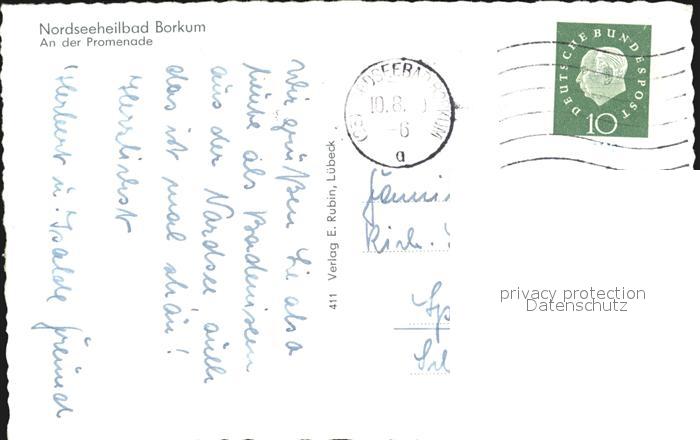 Nordseeheilbad Borkum
An der Promenade
Wir grüßen Sie also
heute als Badenixen
aus der Nordsee, auch
das ist mal schön!
Herzlichst
Herbert u. Isolde
411 Verlag E. Rubin, Lübeck
NORDSEEBAD BORKUM
10.8.
-6
a
DEUTSCHE BUNDESPOST
10
Fami
privacy protection
Datenschutz